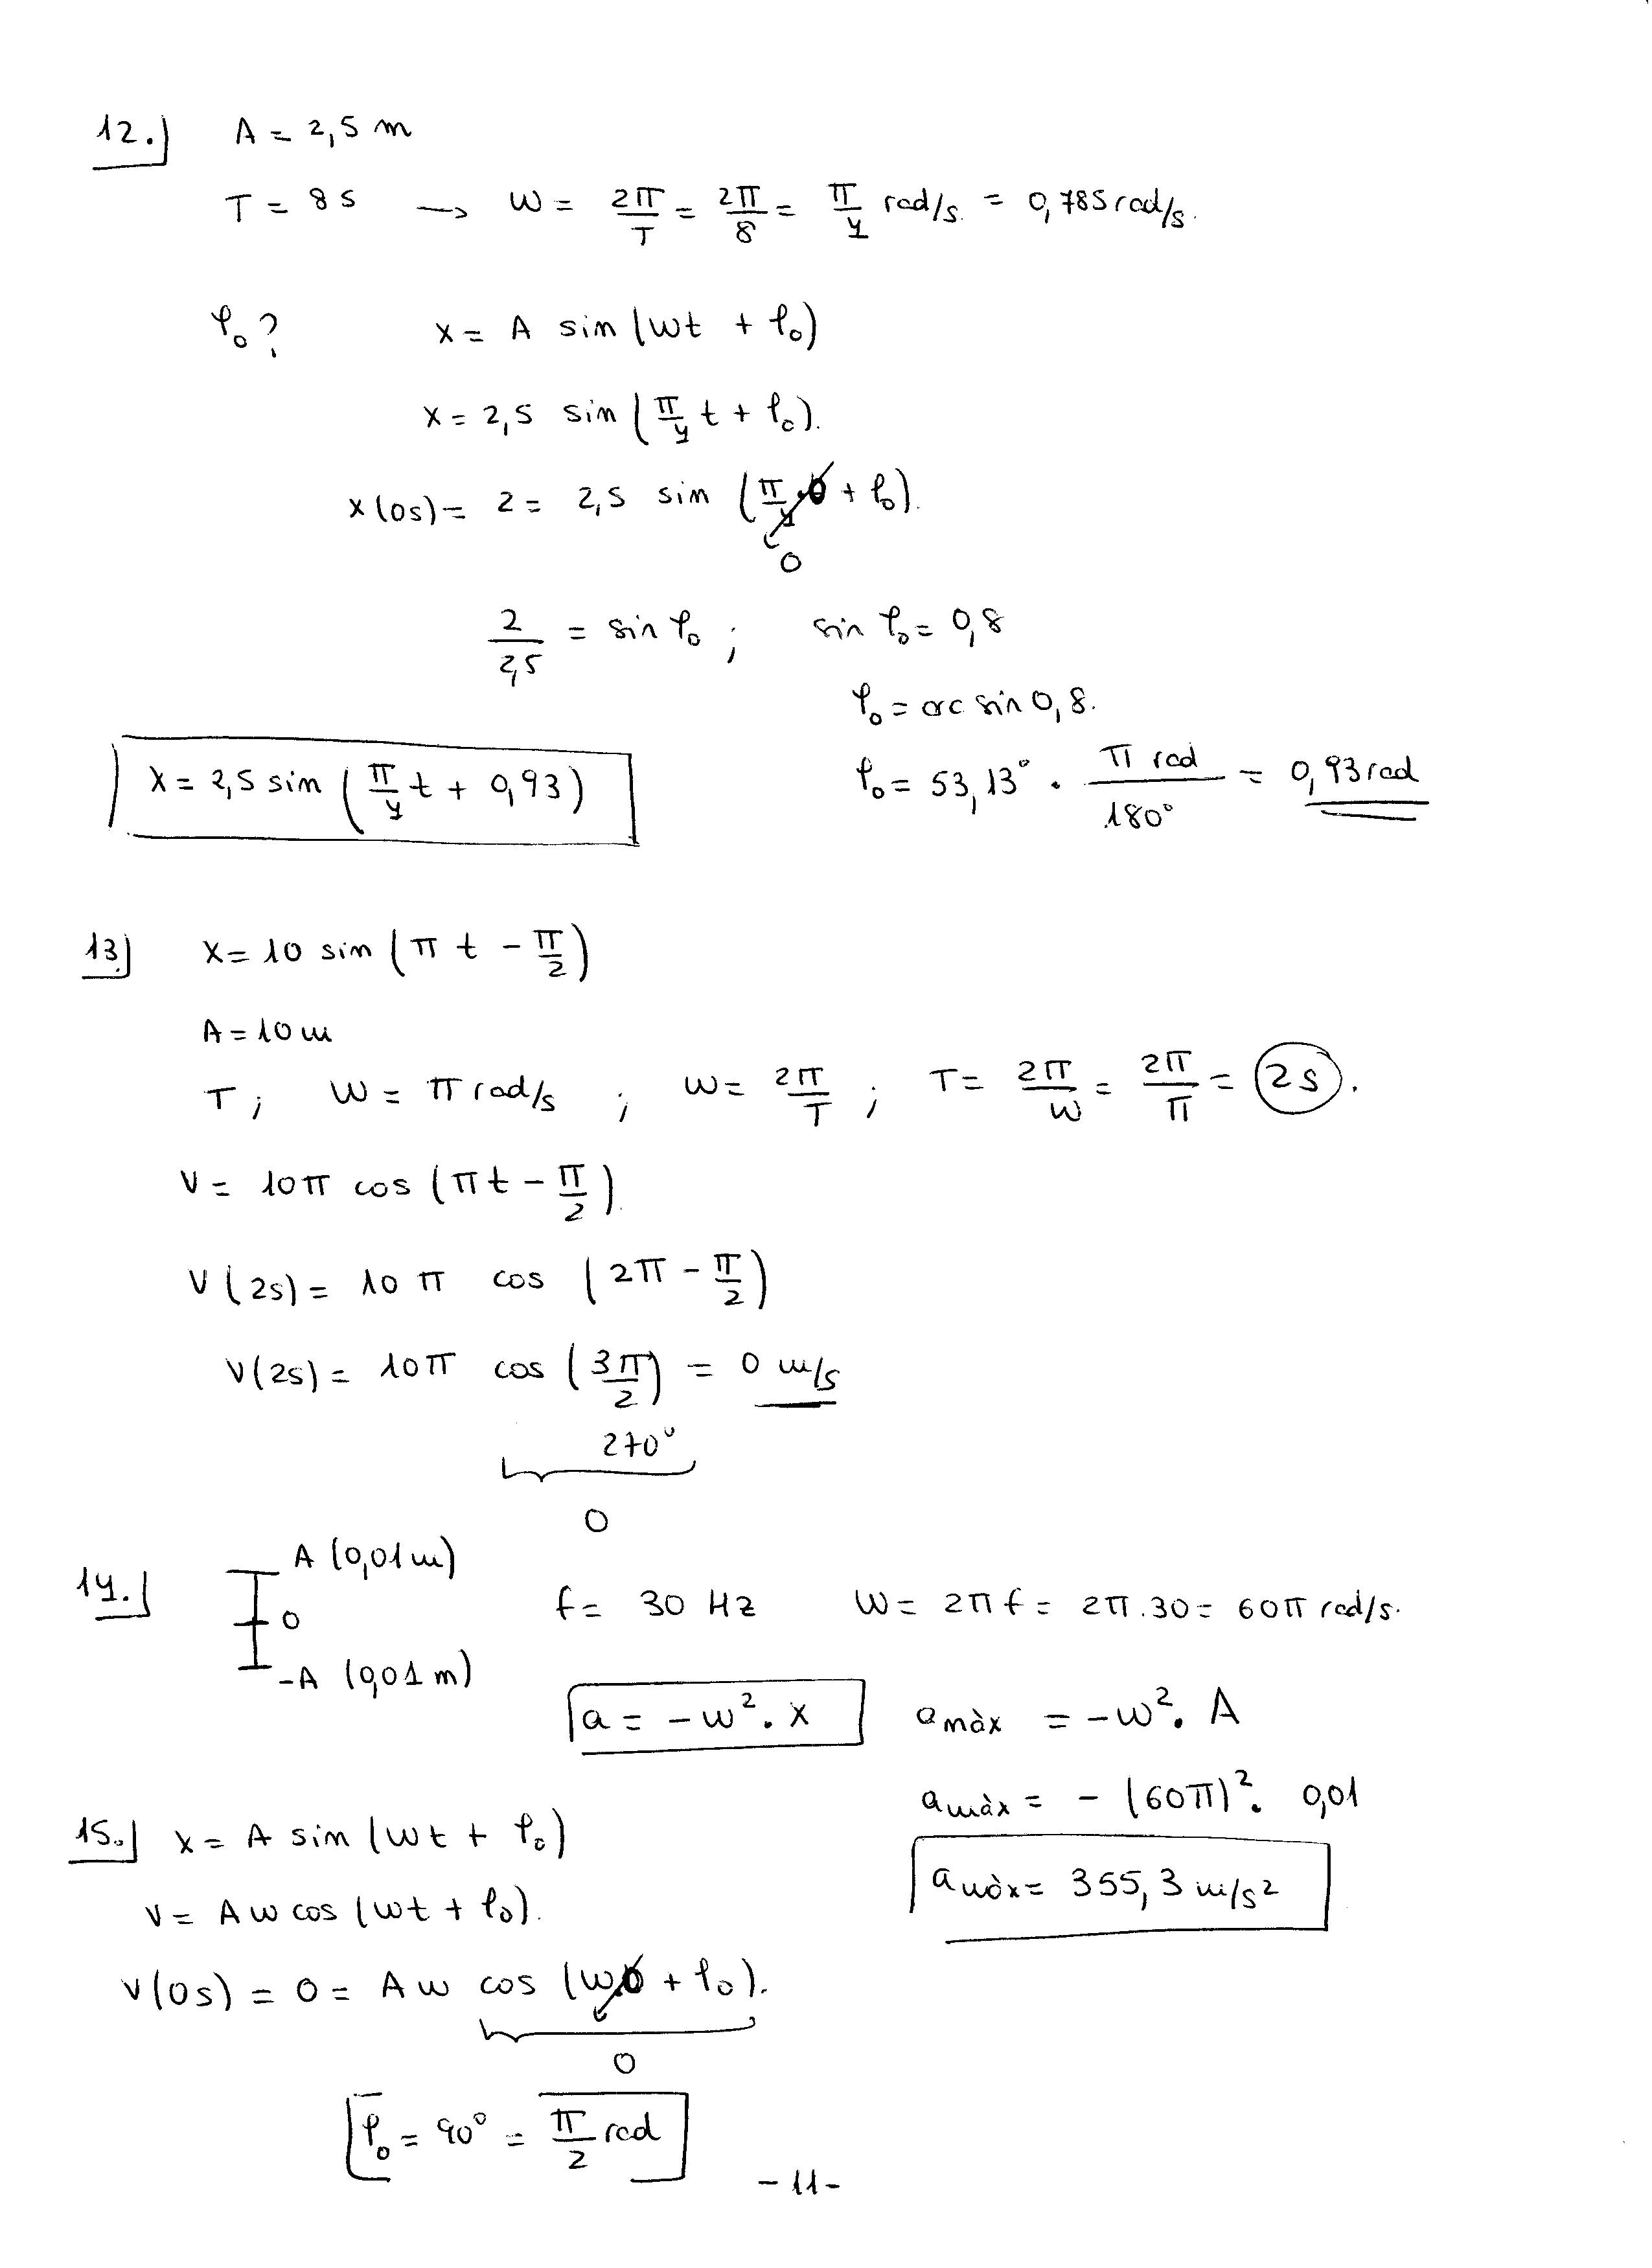 12.) A = 2,5 m
T = 8 s → W = 2π/T = 2π/8 = π/4 rad/s. = 0,785 rad/s.
φ₀? x = A sin (wt + φ₀)
x = 2,5 sin (π/4 t + φ₀).
x(0s) = 2 = 2,5 sin (π/4·0 + φ₀).
0
2/2,5 = sin φ₀ ; sin φ₀ = 0,8
φ₀ = arc sin 0,8.
x = 2,5 sin (π/4 t + 0,93) φ₀ = 53,13° · π rad/180° = 0,93 rad
13) x = 10 sin (π t - π/2)
A = 10 m
T ; W = π rad/s ; W = 2π/T ; T = 2π/W = 2π/π = 2 s.
V = 10π cos (πt - π/2).
V(2s) = 10 π cos (2π - π/2)
V(2s) = 10π cos (3π/2) = 0 m/s
270°
0
14.) A (0,01 m)
0
-A (0,01 m)
f = 30 Hz W = 2πf = 2π.30 = 60π rad/s.
a = -w². x a màx = -w². A
a màx = - (60π)². 0,01
a màx = 355,3 m/s²
15.) x = A sin (wt + φ₀)
V = A w cos (wt + φ₀).
V(0s) = 0 = A w cos (w.0 + φ₀).
0
φ₀ = 90° = π/2 rad
- 11 -